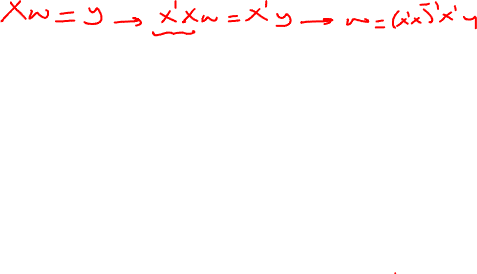 Xw = y → x'xw = x'y → w = (x'x)⁻¹x'y